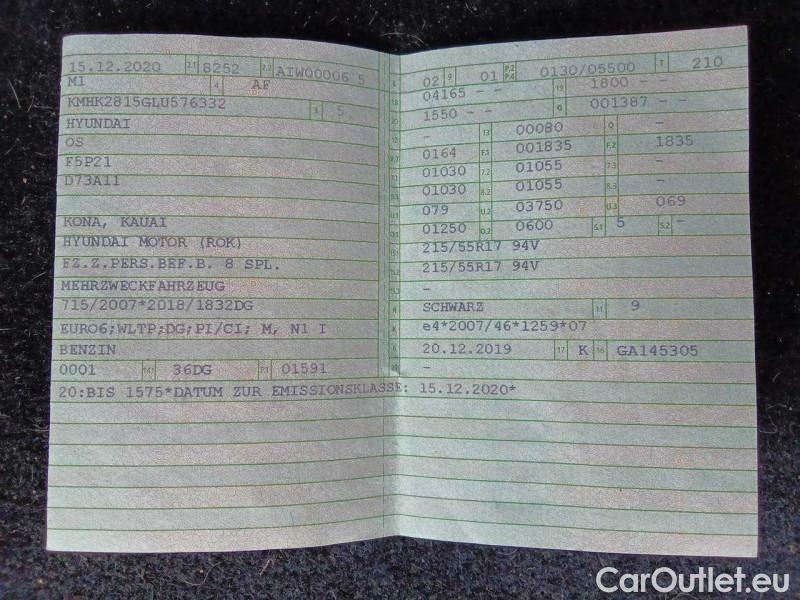 15.12.2020 2.1 8252 2.2 AIW00006 5
M1 4 AF
KMHK2815GLU576332 3 5
HYUNDAI
OS
F5P21
D73A11
KONA, KAUAI
HYUNDAI MOTOR (ROK)
FZ.Z.PERS.BEF.B. 8 SPL.
MEHRZWECKFAHRZEUG
715/2007*2018/1832DG
EURO6;WLTP;DG;PI/CI; M, N1 I
BENZIN
0001 14.1 36DG P.1 01591
L 02 9 01 P.2 P.4 0130/05500 T 210
18 04165 - - 19 1800 - -
20 1550 - - G 001387 - -
- 13 00080 Q -
0164 F.1 001835 F.2 1835
01030 7.2 01055 7.3 -
01030 8.2 01055 8.3 -
U.1 079 U.2 03750 U.3 069
O.1 01250 O.2 0600 S.1 5 S.2 -
15.1 215/55R17 94V
215/55R17 94V
-
R SCHWARZ 11 9
K e4*2007/46*1259*07
6 20.12.2019 17 K 16 GA145305
-
20:BIS 1575*DATUM ZUR EMISSIONSKLASSE: 15.12.2020*
CarOutlet.eu